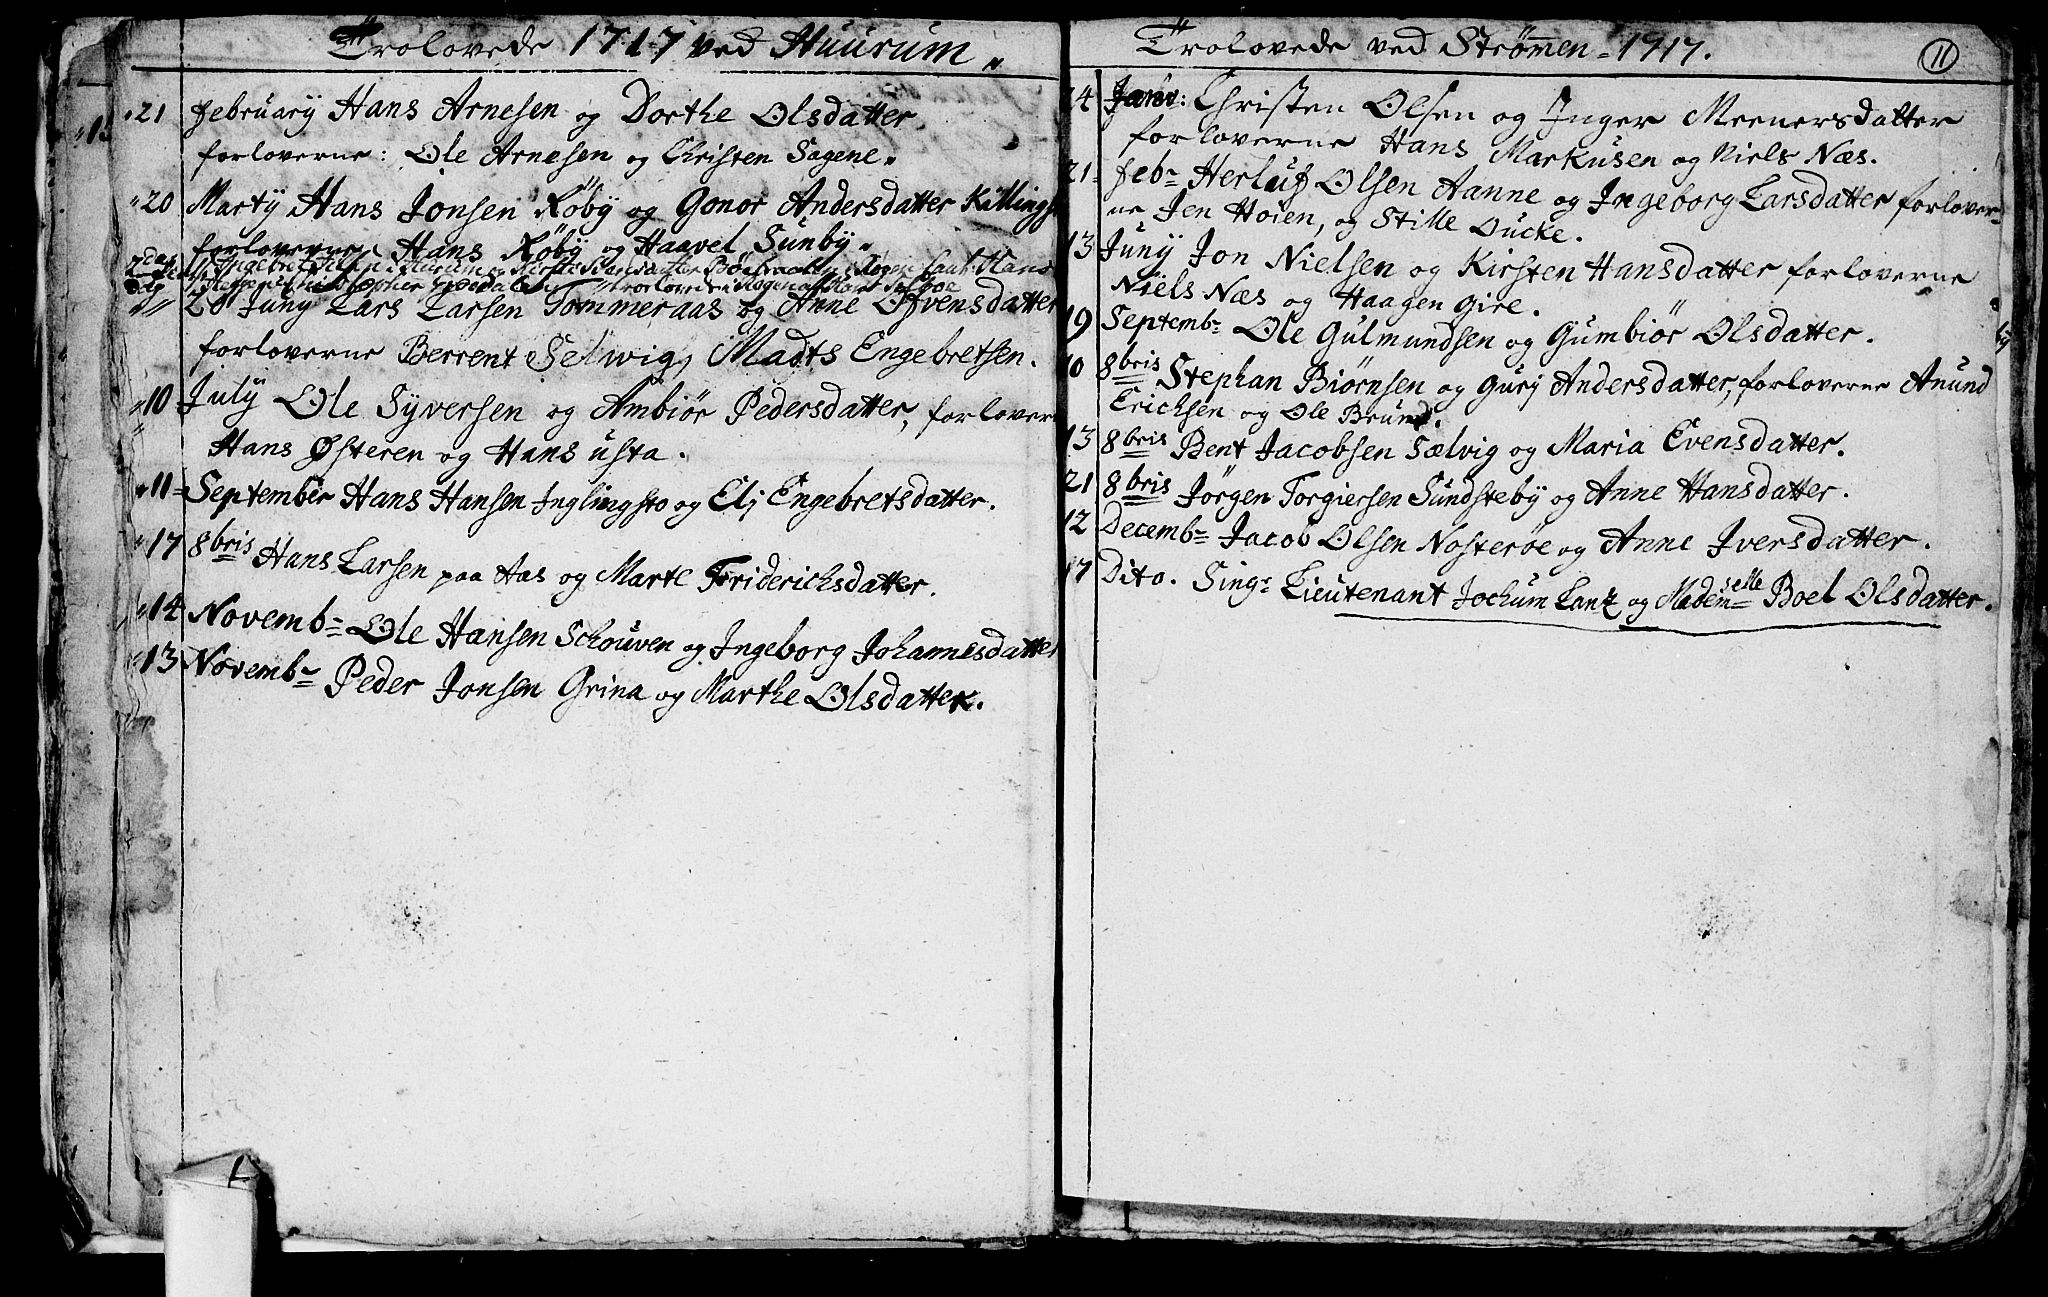 Trolovede 1717 ved Huurum
21 february Hans Arnesen og Dorthe Olsdatter
forloverne: Ole Arnesen og Christen Sagene.
20 Martÿ Hans Jonsen Röbÿ og Gonor Andersdatter Killings
forloverne Hans Röbÿ og Haavel Sunbÿ.
20 Junÿ Lars Larsen Tommeraas og Anne Øfvensdatter
forloverne Berrent Selwig, Madts Engebretsen.
10 Julÿ Ole Syversen og Ambiör Pedersdatter, forlover
Hans Østeren og Hans Usta.
11 September Hans Hansen Inglingsto og Eli Engebretsdatter.
17 8bris Hans Larsen paa Aas og Marte Friderichsdatter.
14 Novemb Ole Hansen Schouven og Ingeborg Johannesdatter
13 Novemb Peder Jonsen Grina og Marthe Olsdatter.
Trolovede ved Strømen 1717.
11
24 Janv: Christen Olsen og Inger Meenersdatter
forloverne Hans Markusen og Niels Næs.
21 feb Herluf Olsen Aanne og Ingeborg Larsdatter forlover-
ne Jen Hoien, og Stille Ducke.
13 Junÿ Jon Nielsen og Kirsten Hansdatter forloverne
Niels Næs og Haagen Gire.
19 Septemb Ole Gulmundsen og Gumbiör Olsdatter.
10 8bris Stephan Biørnsen og Gurj Andersdatter, forloverne Anund
Ericksen og Ole Brund.
13 8bris Bent Jacobsen Sælvig og Maria Evensdatter.
21 8bris Jörgen Torgiersen Sundstebÿ og Anne Hansdatter.
12 Decemb Jacob Olsen Nosterøe og Anne Iversdatter.
17 Dito. Sing Lieutenant Jochum Lanz og Mademselle Boel Olsdatter.